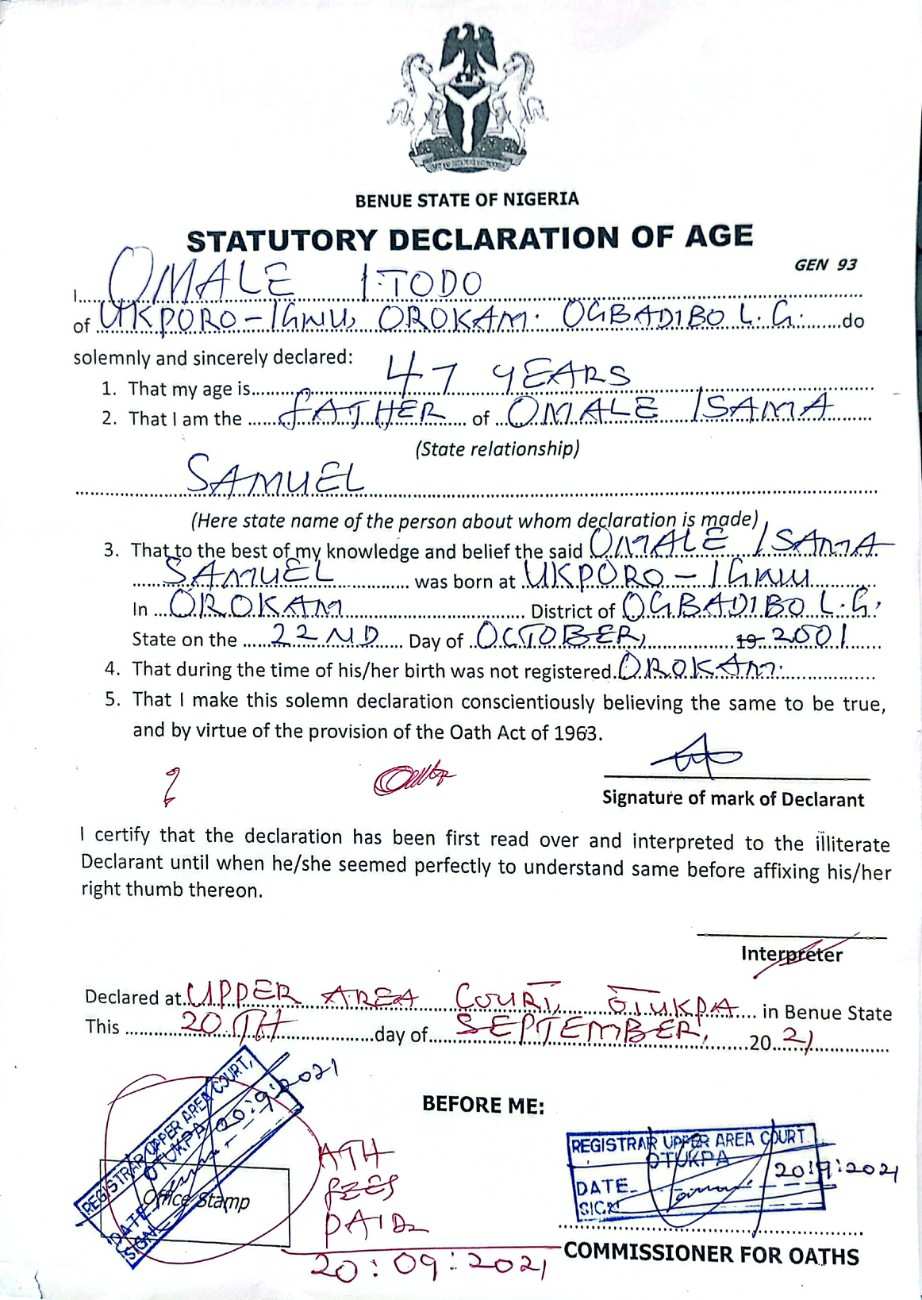 BENUE STATE OF NIGERIA
STATUTORY DECLARATION OF AGE
GEN 93
I OMALE ITODO
of UKPORO-IGWU, OROKAM. OGBADIBO L.G. do
solemnly and sincerely declared:
1. That my age is 47 YEARS
2. That I am the FATHER of OMALE ISAMA
(State relationship)
SAMUEL
(Here state name of the person about whom declaration is made)
3. That to the best of my knowledge and belief the said OMALE ISAMA
SAMUEL was born at UKPORO-IGWU
In OROKAM District of OGBADIBO L.G.
State on the 22ND Day of OCTOBER, 19 2001
4. That during the time of his/her birth was not registered. OROKAM.
5. That I make this solemn declaration conscientiously believing the same to be true,
and by virtue of the provision of the Oath Act of 1963.
Signature of mark of Declarant
I certify that the declaration has been first read over and interpreted to the illiterate
Declarant until when he/she seemed perfectly to understand same before affixing his/her
right thumb thereon.
Interpreter
Declared at UPPER AREA COURT, OTUKPA in Benue State
This 20TH day of SEPTEMBER, 2021
BEFORE ME:
REGISTRAR UPPER AREA COURT,
OTUKPA
DATE 20:9:2021
SIGN
Office Stamp
FEES
PAID
20:09:2021
REGISTRAR UPPER AREA COURT
OTUKPA
DATE 20:9:2021
SIGN
COMMISSIONER FOR OATHS